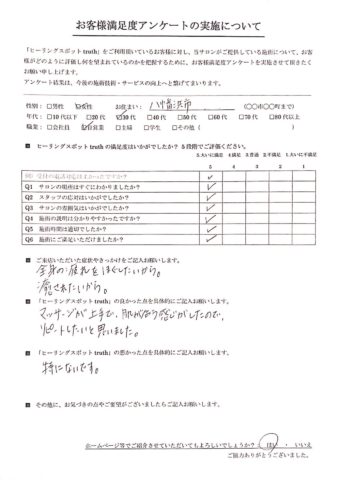 お客様満足度アンケートの実施について
「ヒーリングスポット truth」をご利用頂いているお客様に対し、当サロンがご提供している施術について、お客
様がどのように評価し何を望まれているのかを把握するために、お客様満足度アンケートを実施させて頂きたく
お願い申し上げます。
アンケート結果は、今後の施術技術・サービスの向上へと繋げてまいります。
性別: □男性 ☑女性 お住まい: (〇〇市〇〇町まで)
年代: □10代以下 □20代 □30代 □40代 □50代 □60代 □70代 □80代以上
職業: □会社員 □自営業 □主婦 □学生 □その他( )
■ ヒーリングスポット truth の満足度はいかがでしたか? 5 段階でご評価ください。
5.大いに満足 4.満足 3.普通 2.不満 1.大いに不満
5 4 3 2 1
Q1 サロンの場所はすぐにわかりましたか? ✓
Q2 スタッフの応対はいかがでしたか? ✓
Q3 サロンの雰囲気はいかがでしたか? ✓
Q4 施術の説明は分かりやすかったですか? ✓
Q5 施術時間は適切でしたか? ✓
Q6 施術にご満足いただけましたか? ✓
■ ご来店いただいた症状やきっかけをご記入お願いします。
全身の疲れをほぐしたいから。
癒されたいから。
■ 「ヒーリングスポット truth」の良かった点を具体的にご記入お願いします。
マッサージが上手で、 感じがしたので、
リピートしたいと思いました。
■ 「ヒーリングスポット truth」の悪かった点を具体的にご記入お願いします。
特にないです。
■ その他に、お気づきの点やご要望がございましたらご記入お願いします。
ホームページ等でご紹介させていただいてもよろしいでしょうか? はい ・ いいえ
ご協力ありがとうございました。